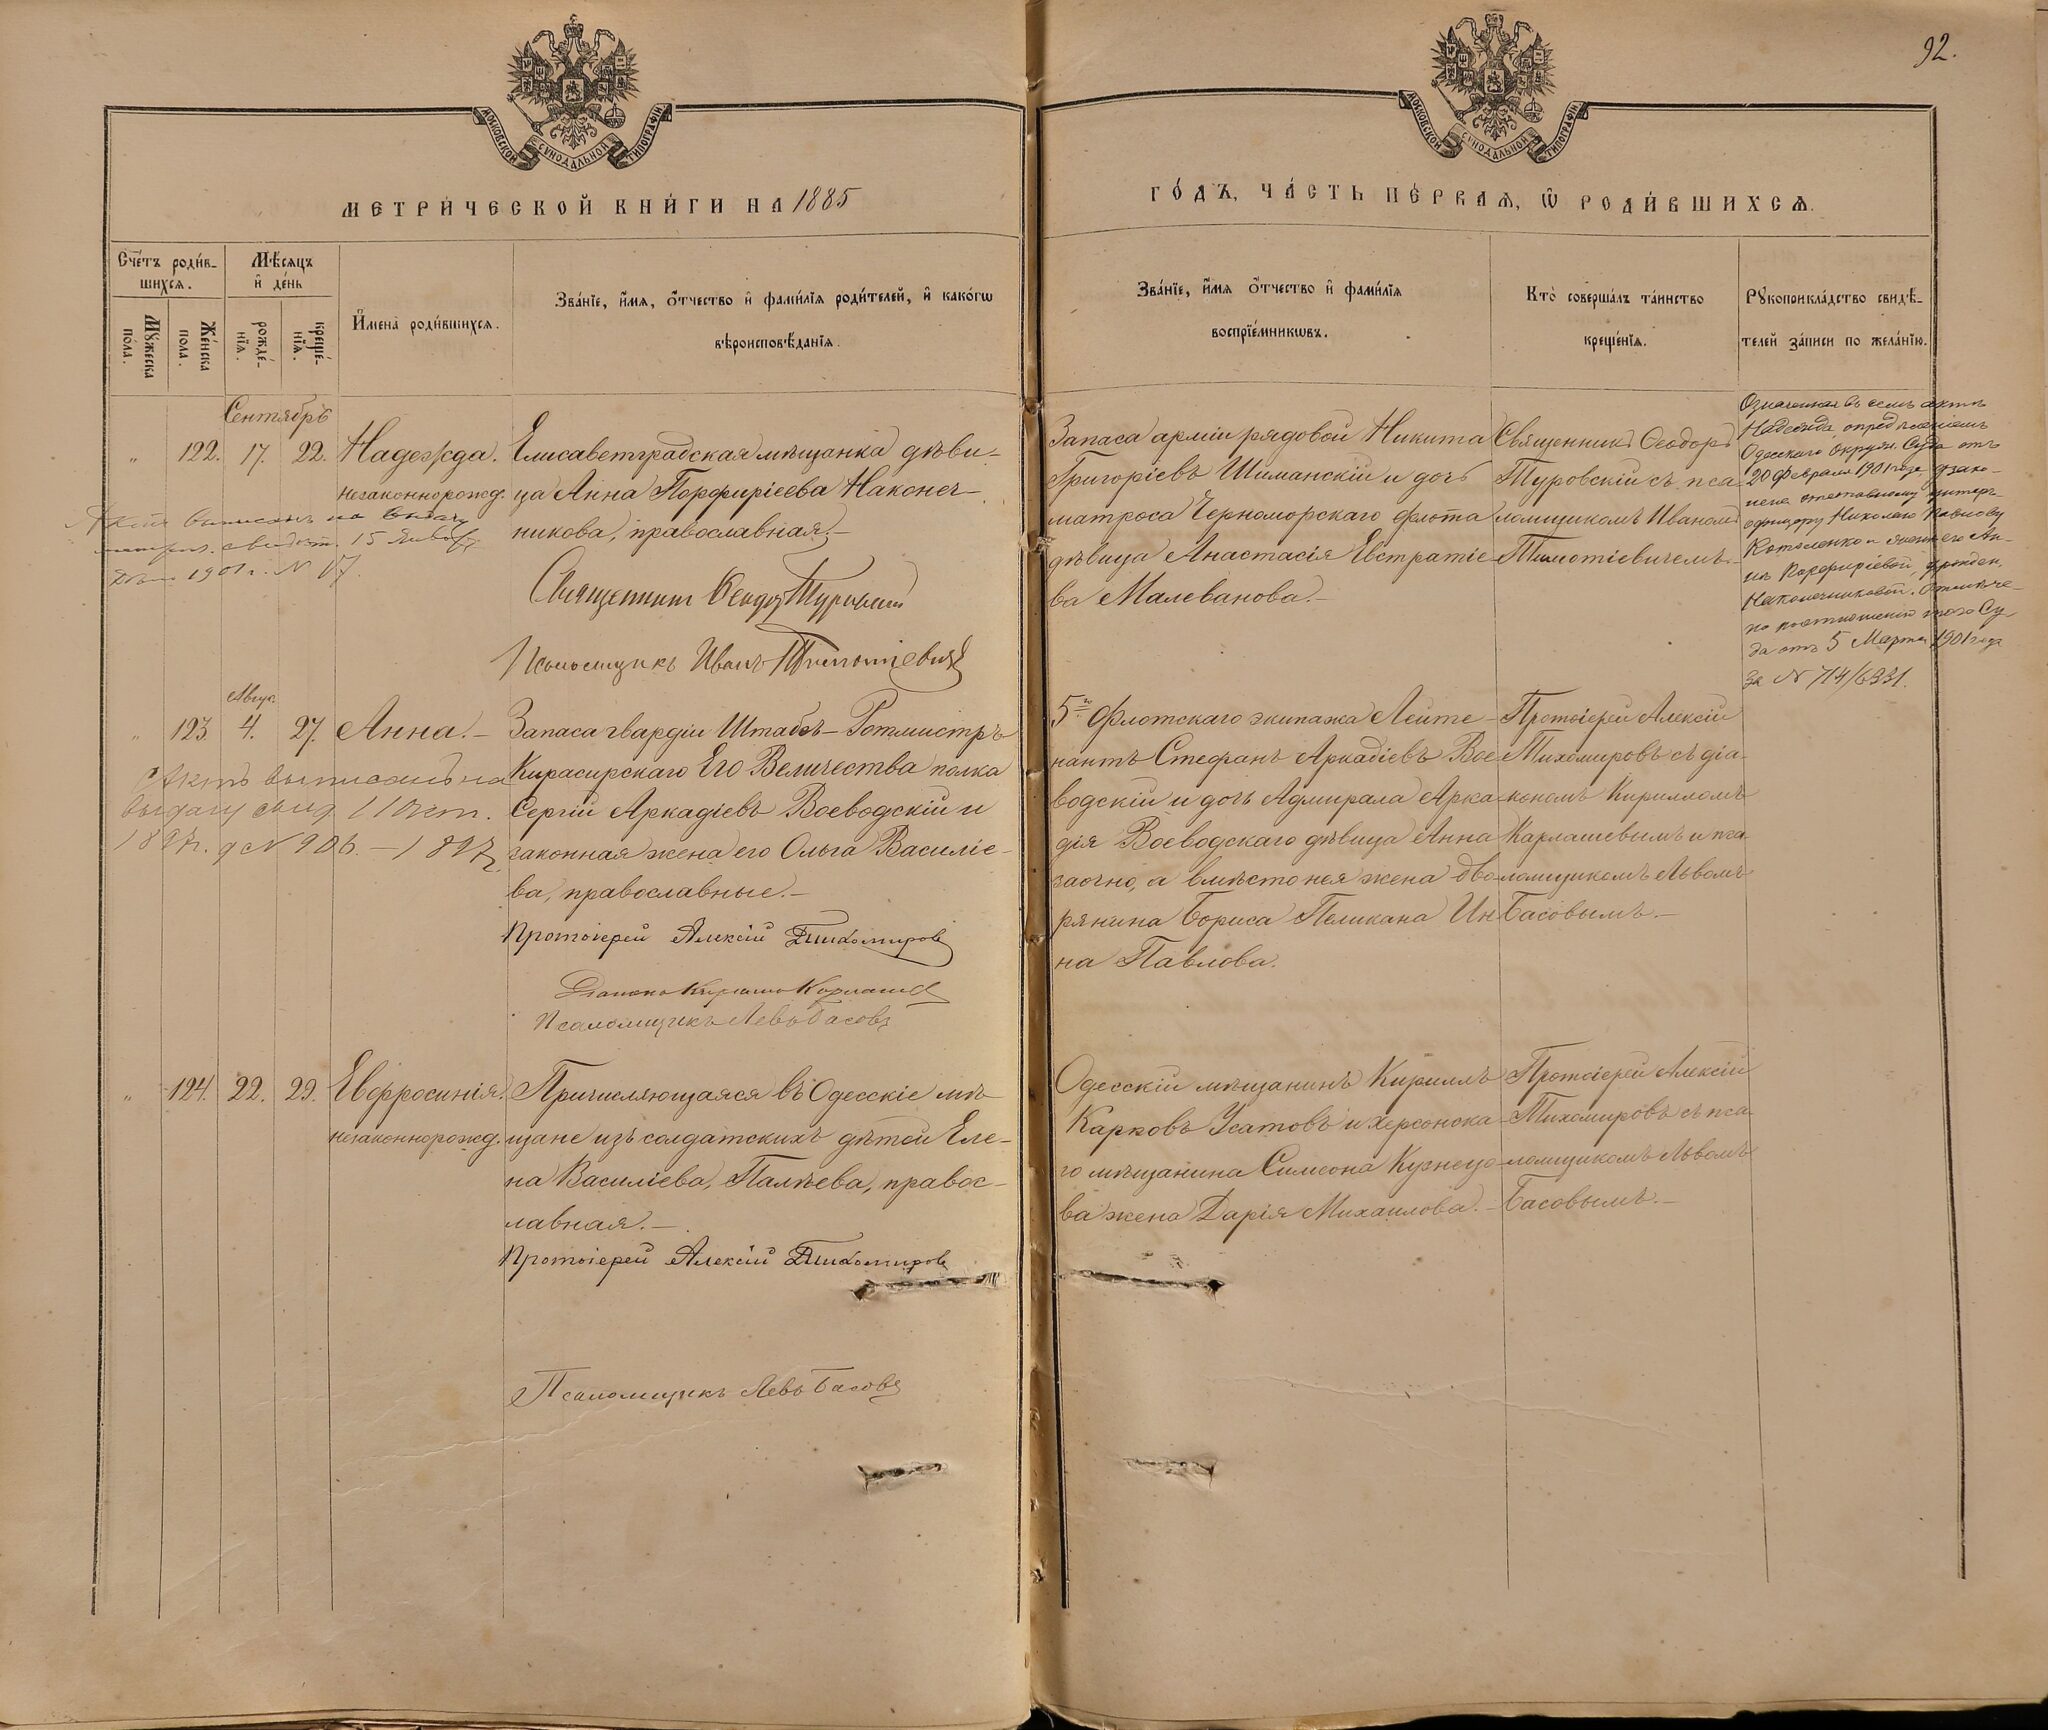 92.
МОСКОВСКОЙ СѴНОДАЛЬНОЙ ТИПОГРАФІИ
МОСКОВСКОЙ СѴНОДАЛЬНОЙ ТИПОГРАФІИ
МЕТРИ́ЧЕСКОЙ КНИ́ГИ НА 1885
ГО́ДЪ, ЧА́СТЬ ПЕ́РВАѦ, Ѿ РОДИ́ВШИХСѦ.
Сче́тъ роди́в-
шихсѧ.
Мꙋ́жеска по́ла.
Же́нска по́ла.
Мѣ́сѧцъ
и҆ де́нь
рожде́-
нїѧ.
креще́-
нїѧ.
И҆мена̀ роди́вшихсѧ.
Зва́нїе, и҆́мѧ, ѻ҆́тчество и҆ фами́лїѧ роди́телей, и҆ како́гѡ
вѣроисповѣ́данїѧ.
Зва́нїе, и҆́мѧ ѻ҆́тчество и҆ фами́лїѧ
воспрїе́мникѡвъ.
Кто̀ соверша́лъ та́инство
креще́нїѧ.
Рꙋкоприкла́дство свидѣ́-
телей за́писи по жела́нїю.
Сентябрь
" 122. 17. 22. Надежда.
незаконнорожд.
Елисаветградская мѣщанка дѣви-
ца Анна Порфиріева Наконеч-
никова, православная.-
Священникъ Ѳеодоръ Туровскій
Псаломщикъ Иванъ Тимотіевичъ
Актъ выписанъ на выдачу
метрич. свидѣт. 15 Января
1901 г. N 17.
Запаса арміи рядовой Никита
Григоріевъ Шиманскій и дочь
матроса Черноморскаго флота
дѣвица Анастасія Евстратіе-
ва Малеванова.-
Священникъ Ѳеодоръ
Туровскій съ пса-
ломщикомъ Иваномъ
Тимотіевичемъ.-
Означенная въ семъ актѣ
Надежда, опредѣленіемъ
Одесскаго Окружн. Суда отъ
20 Февраля 1901 года, узако-
нена отставному унтеръ-
офицеру Николаю Павлову
Котоленко и женѣ его Ан-
нѣ Порфиріевой, урожден.
Наконечниковой. Отмѣче-
но по отношенію того Су-
да отъ 5 Марта 1901 года
за N 714/6331.
Авгус.
" 123 4. 27. Анна.-
Запаса гвардіи Штабсъ-Ротмистръ
Кирасирскаго Его Величества полка
Сергій Аркадіевъ Воеводскій и
законная жена его Ольга Василіе-
ва, православные.-
Протоіерей Алексій Тихомировъ
Діаконъ Кириллъ Карлашевъ
Псаломщикъ Левъ Басовъ
Актъ выписанъ на
выдачу свид. 11 Окт.
1897 г. N 906.-1897
5го Флотскаго экипажа Лейте-
нантъ Стефанъ Аркадіевъ Вое-
водскій и дочь Адмирала Арка-
дія Воеводскаго дѣвица Анна
заочно, а вмѣсто нея жена дво-
рянина Бориса Пеликана Ин-
на Павлова.
Протоіерей Алексій
Тихомировъ съ діа-
кономъ Кирилломъ
Карлашевымъ и пса-
ломщикомъ Львомъ
Басовымъ.-
" 124. 22. 29. Евфросинія.
незаконнорожд.
Причисляющаяся въ Одесскіе мѣ-
щане изъ солдатскихъ дѣтей Еле-
на Василіева, Палѣева, правос-
лавная.-
Протоіерей Алексій Тихомировъ
Псаломщикъ Левъ Басовъ
Одесскій мѣщанинъ Кириллъ
Карповъ Усатовъ и херсонска-
го мѣщанина Симеона Кузнецо-
ва жена Дарія Михаилова.-
Протоіерей Алексій
Тихомировъ съ пса-
ломщикомъ Львомъ
Басовымъ.-